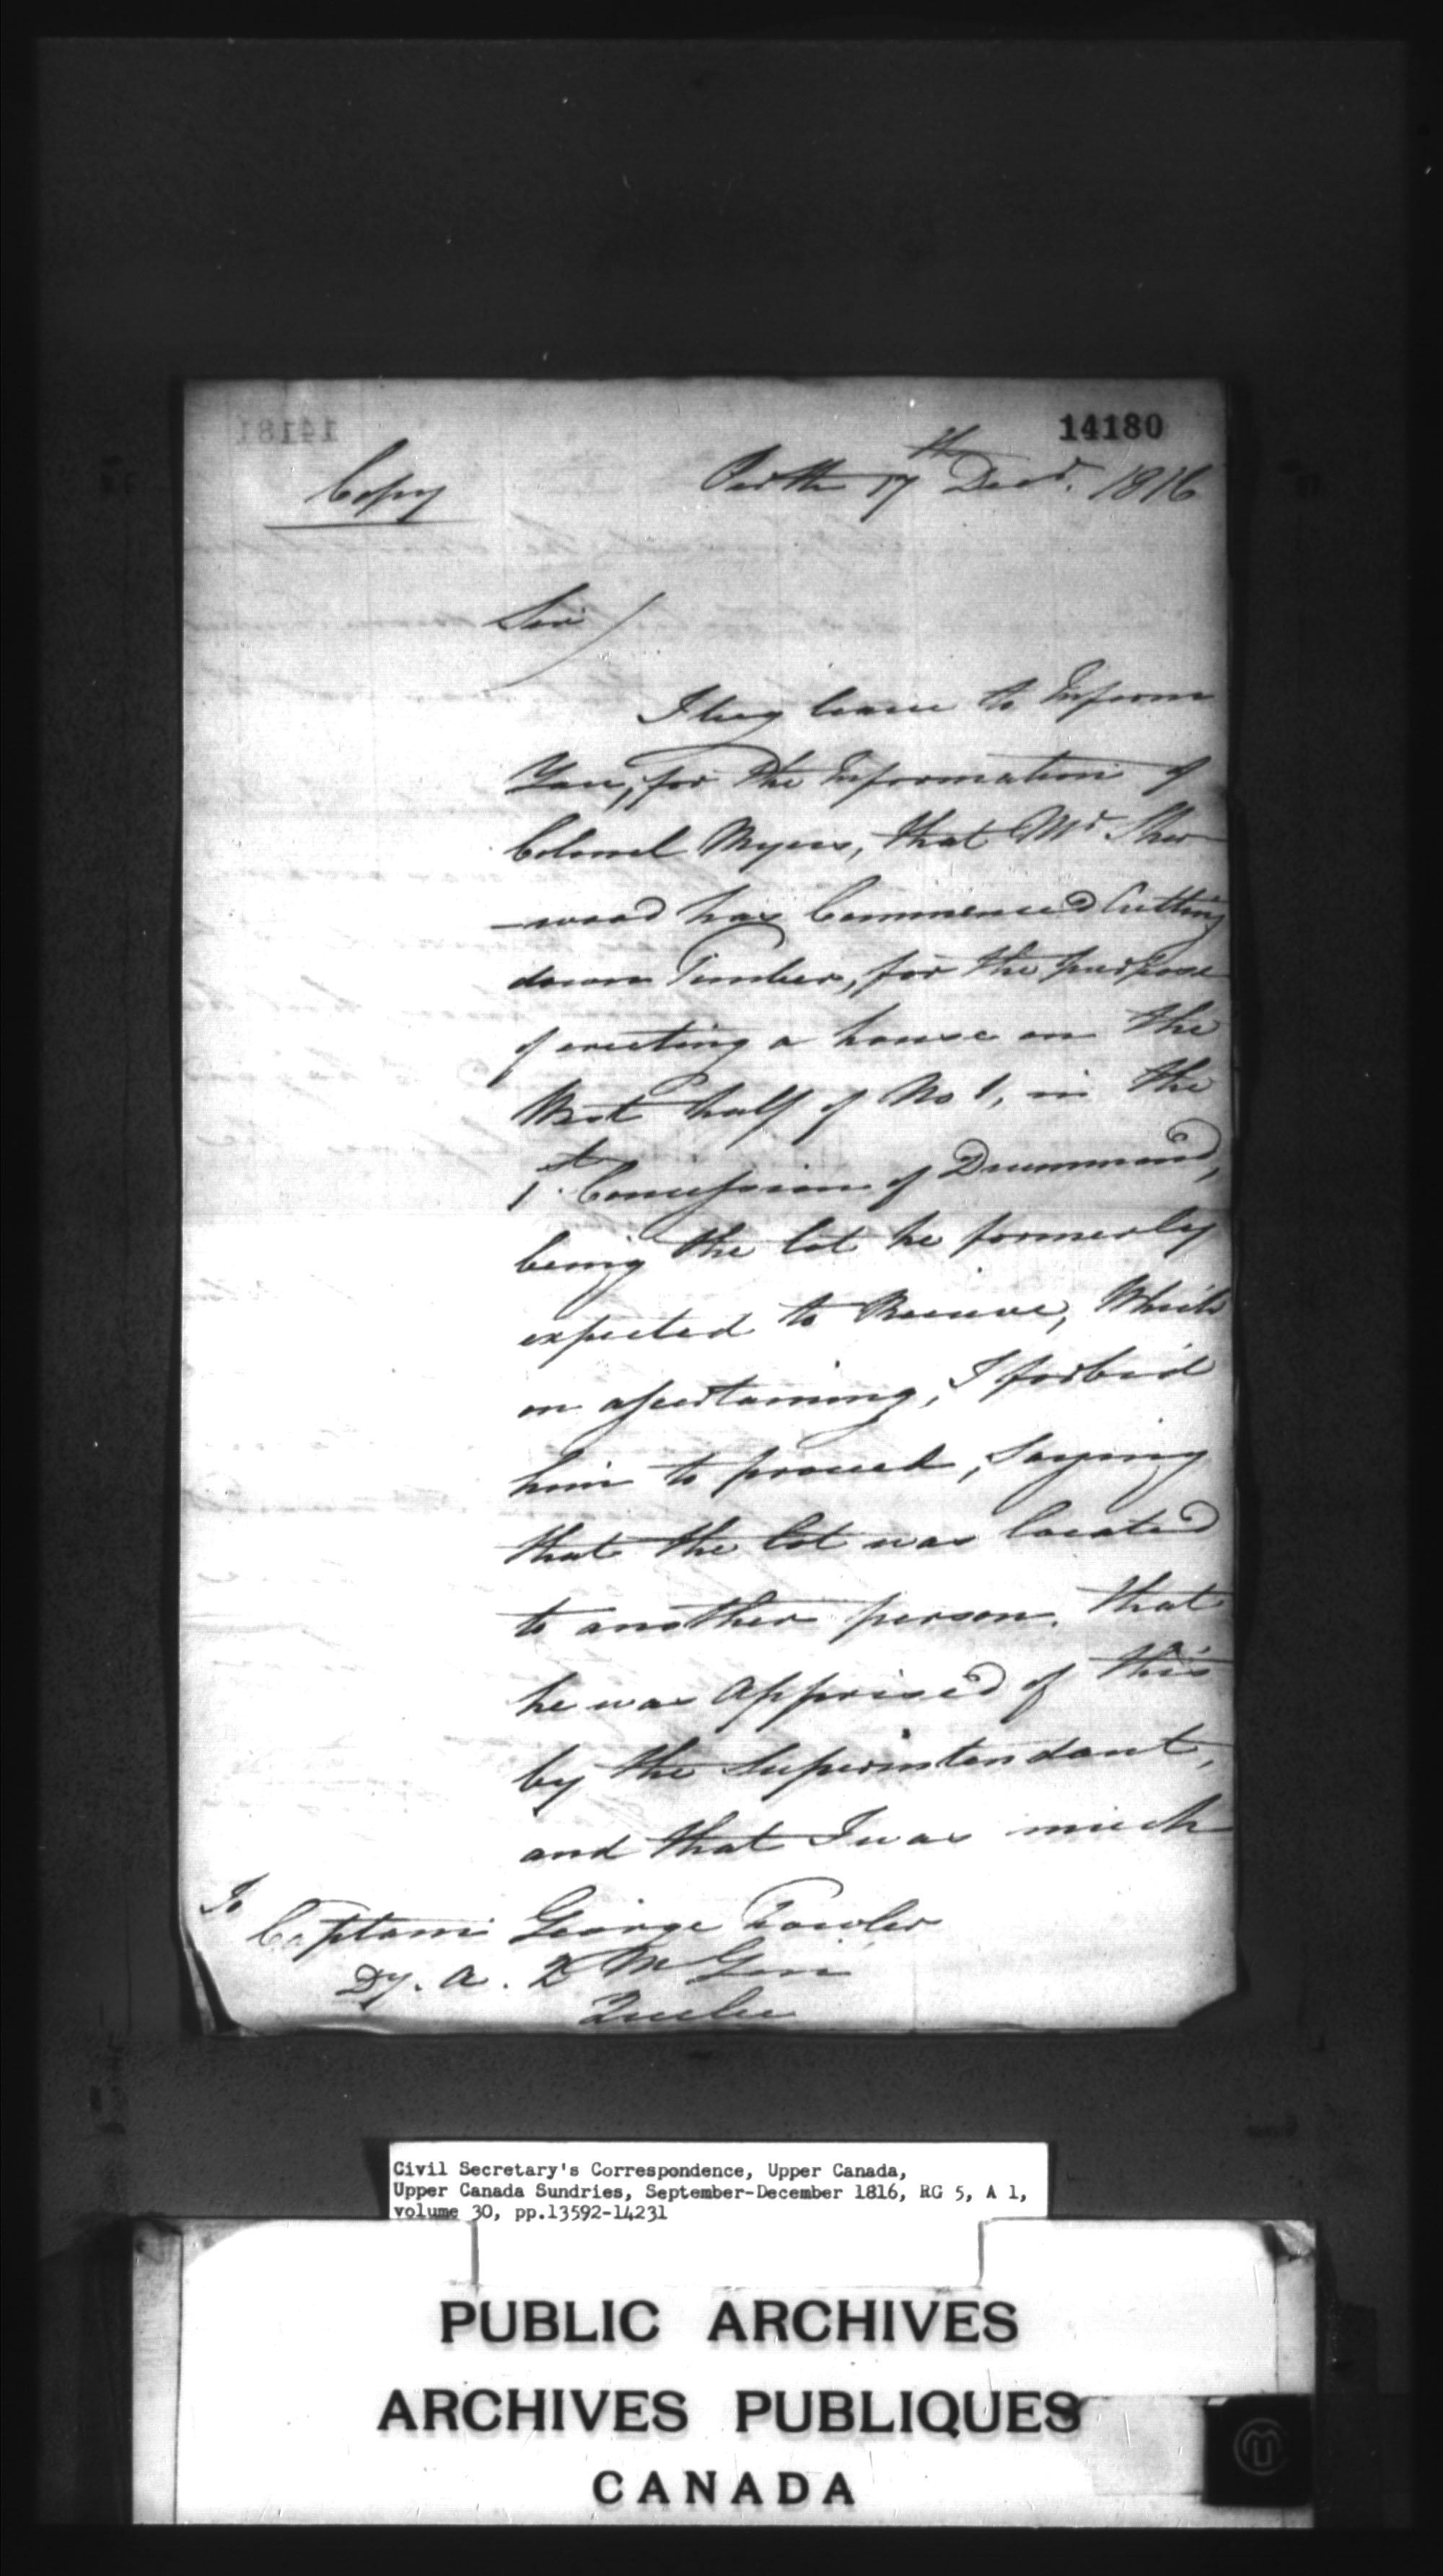 14180
Copy
Perth 17th Decr. 1816
Sir/
I beg leave to Inform
You, for the Information of
Colonel Myers, that Mr Sher-
-wood has Commenced Cutting
down Timber, for the purpose
of erecting a house on the
West half of No 1, in the
1st. Concession of Drummond,
being the lot he formerly
expected to Receive, Which
on ascertaining, I forbid
him to proceed, Saying
that the lot was located
to another person. that
he was Apprised of this
by the Superintendant,
and that I was much
To
Captain George Fowler
Dy. A. Q M Genl
Quebec
Civil Secretary's Correspondence, Upper Canada,
Upper Canada Sundries, September-December 1816, RG 5, A 1,
volume 30, pp.13592-14231
PUBLIC ARCHIVES
ARCHIVES PUBLIQUES
CANADA